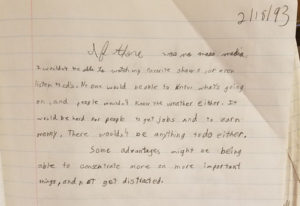 2/18/93
If there was no mass media
I wouldn't be able to watch my favorite shows, or even
listen to cds. No one would be able to know what's going
on, and people wouldn't know the weather either. It
would be hard for people to get jobs and to earn
money. There wouldn't be anything to do either.
Some advantages might be being
able to concentrate more on more important
things, and not get distracted.